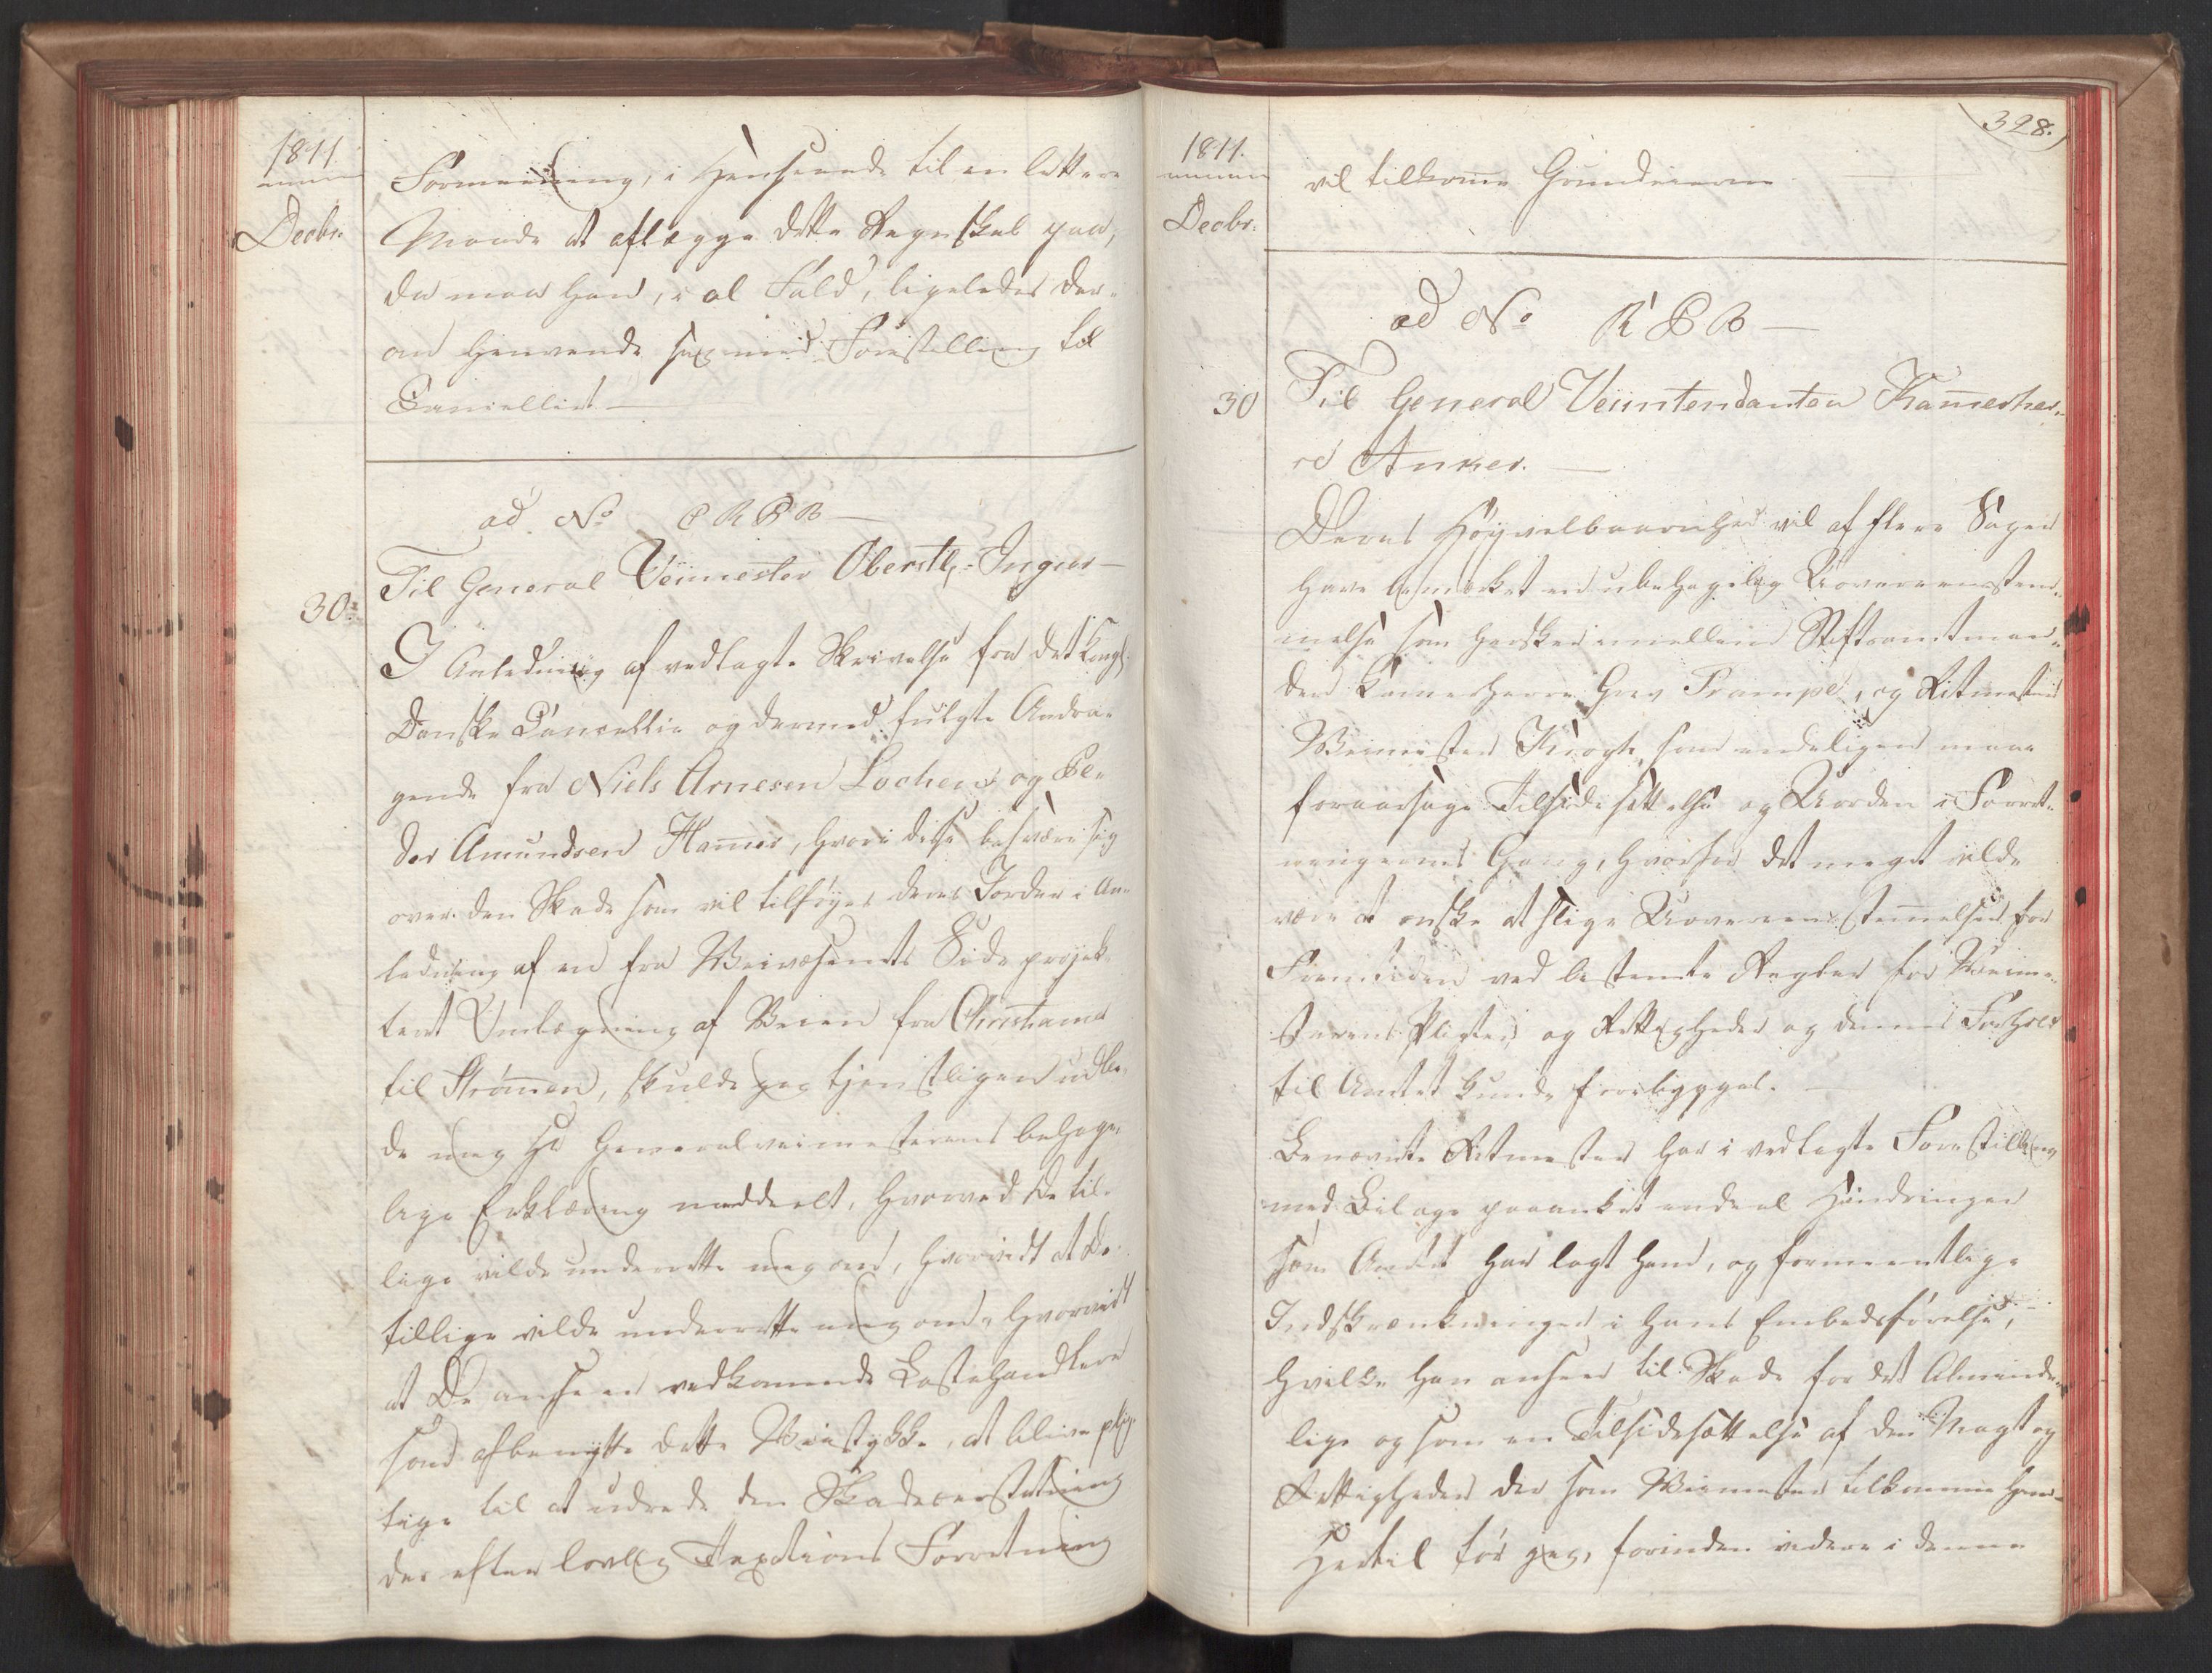 1811.
Decbr.
Formening, i Henseende til en lettere
Maade at aflægge dette Regnskab paa,
da maa han, i al Fald, ligeledes der-
om henvende sig med Forestilling til
Cancelliet —
ad No C R P B —
30:
Til General Veimester Oberstl. Ingier —
I Anledning af vedlagte Skrivelse fra det kongl.
Danske Cancellie og dermed fulgte Andra-
gende fra Niels Arnesen Lochen og Pe-
der Amundsen Hammer, hvori disse besvære sig
over den Skade som vil tilføyes deres Jorder i An-
ledning af en fra Veivæsenets Side projek-
teret Omlægning af Veien fra Christiania
til Strømmen, skulde jeg tjenstligen udbe-
de mig Hr Generalveimesterens behage-
lige Erklæring meddeelt, hvorved De til-
lige vilde underrette mig om, hvorvidt at De
tillige vilde underrette mig om, hvorvidt
at De anseer vedkommende Lastehandlere
som afbenytte dette Veistykke, at blive plig-
tige til at udrede den Skadeserstatning
der efter lovlig Taxations Forretning
328.
1811.
Decbr.
vil tilkomme Grundeierne
ad No R P B —
30
Til General Veiintendanten Kammerher-
re Anker. —
Deres Høyvelbaarenhed vil af flere Sager
have bemærket en ubehagelig Uovereenstem-
melse som hersker imellem Stiftsamtman-
den Kammerherre Grev Trampe, og Ritmester
Veimester Krogh, som endeligen maae
foraarsage Tilsidesættelse og Uorden i Forret-
ningernes Gang, hvorfor det meget vilde
være at ønske at slige Uovereensstemmelser for
Fremtiden ved bestemte Regler for Veime-
sterens Pligter og Rettigheder og dennes Forhold
til Amtet kunde forebygges. —
Benævnte Ritmester har i vedlagte Forestilling
med Bilage paaanket endeel Hindringer
som Amtet har lagt ham, og formeentlige
Indskrænkninger i hans Embedsførelse,
hvilke han anseer til Skade for det Alminde-
lige og som en Tilsidesættelse af den Magt og
Rettigheder der som Veimester tilkomme ham.
Hertil tør jeg, forinden videre i denne